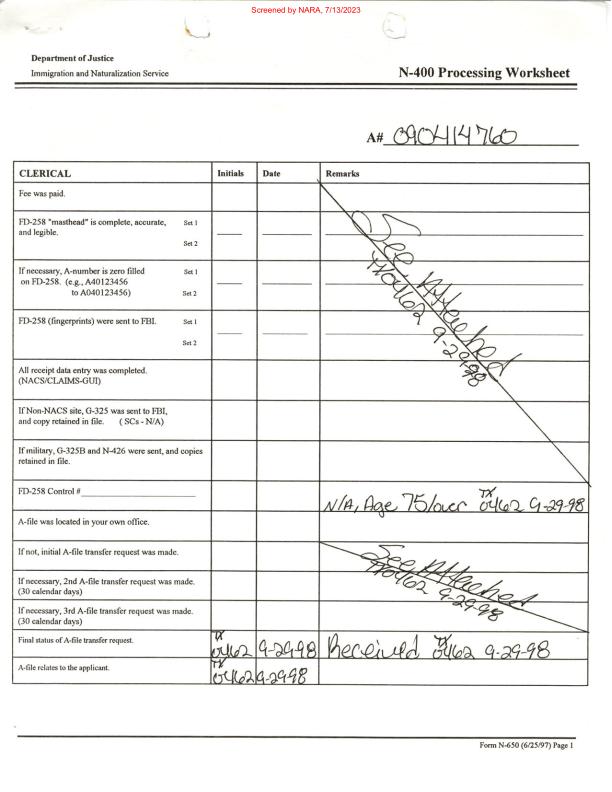 Screened by NARA, 7/13/2023
Department of Justice
Immigration and Naturalization Service
N-400 Processing Worksheet
A# 090414760
CLERICAL Initials Date Remarks
Fee was paid.
FD-258 "masthead" is complete, accurate, Set 1
and legible.
Set 2
See Attached
TX0462 9-29-98
If necessary, A-number is zero filled Set 1
on FD-258. (e.g., A40123456
to A040123456) Set 2
FD-258 (fingerprints) were sent to FBI. Set 1
Set 2
All receipt data entry was completed.
(NACS/CLAIMS-GUI)
If Non-NACS site, G-325 was sent to FBI,
and copy retained in file. ( SCs - N/A)
If military, G-325B and N-426 were sent, and copies
retained in file.
FD-258 Control #
N/A, Age 75/over TX 0462 9-29-98
A-file was located in your own office.
If not, initial A-file transfer request was made.
See Attached
TX0462 9-29-98
If necessary, 2nd A-file transfer request was made.
(30 calendar days)
If necessary, 3rd A-file transfer request was made.
(30 calendar days)
Final status of A-file transfer request. TX 0462 9-29-98 Received TX 0462 9-29-98
A-file relates to the applicant. TX 0462 9-29-98
Form N-650 (6/25/97) Page 1